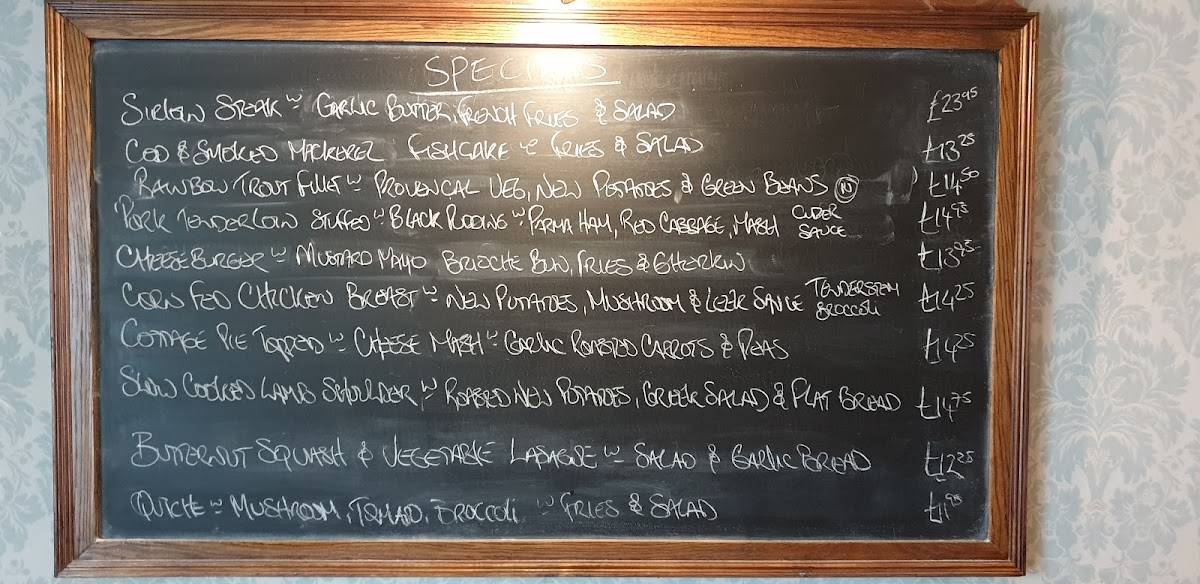 SPECIALS
SIRLOIN STEAK w GARLIC BUTTER, FRENCH FRIES & SALAD £23.95
COD & SMOKED MACKEREL FISHCAKE w FRIES & SALAD £13.25
RAINBOW TROUT FILLET w PROVENCAL VEG, NEW POTATOES & GREEN BEANS (N) £14.50
PORK TENDERLOIN STUFFED w BLACK PUDDING w PARMA HAM, RED CABBAGE, MASH CIDER SAUCE £14.95
CHEESEBURGER w MUSTARD MAYO BRIOCHE BUN, FRIES & GHERKIN £13.95
CORN FED CHICKEN BREAST w NEW POTATOES, MUSHROOM & LEEK SAUCE TENDERSTEM BROCCOLI £14.25
COTTAGE PIE TOPPED w CHEESE MASH w GARLIC ROASTED CARROTS & PEAS £14.25
SLOW COOKED LAMB SHOULDER w ROASTED NEW POTATOES, GREEK SALAD & FLAT BREAD £14.75
BUTTERNUT SQUASH & VEGETABLE LASAGNE w SALAD & GARLIC BREAD £12.25
QUICHE w MUSHROOM, TOMATO, BROCCOLI w FRIES & SALAD £11.95